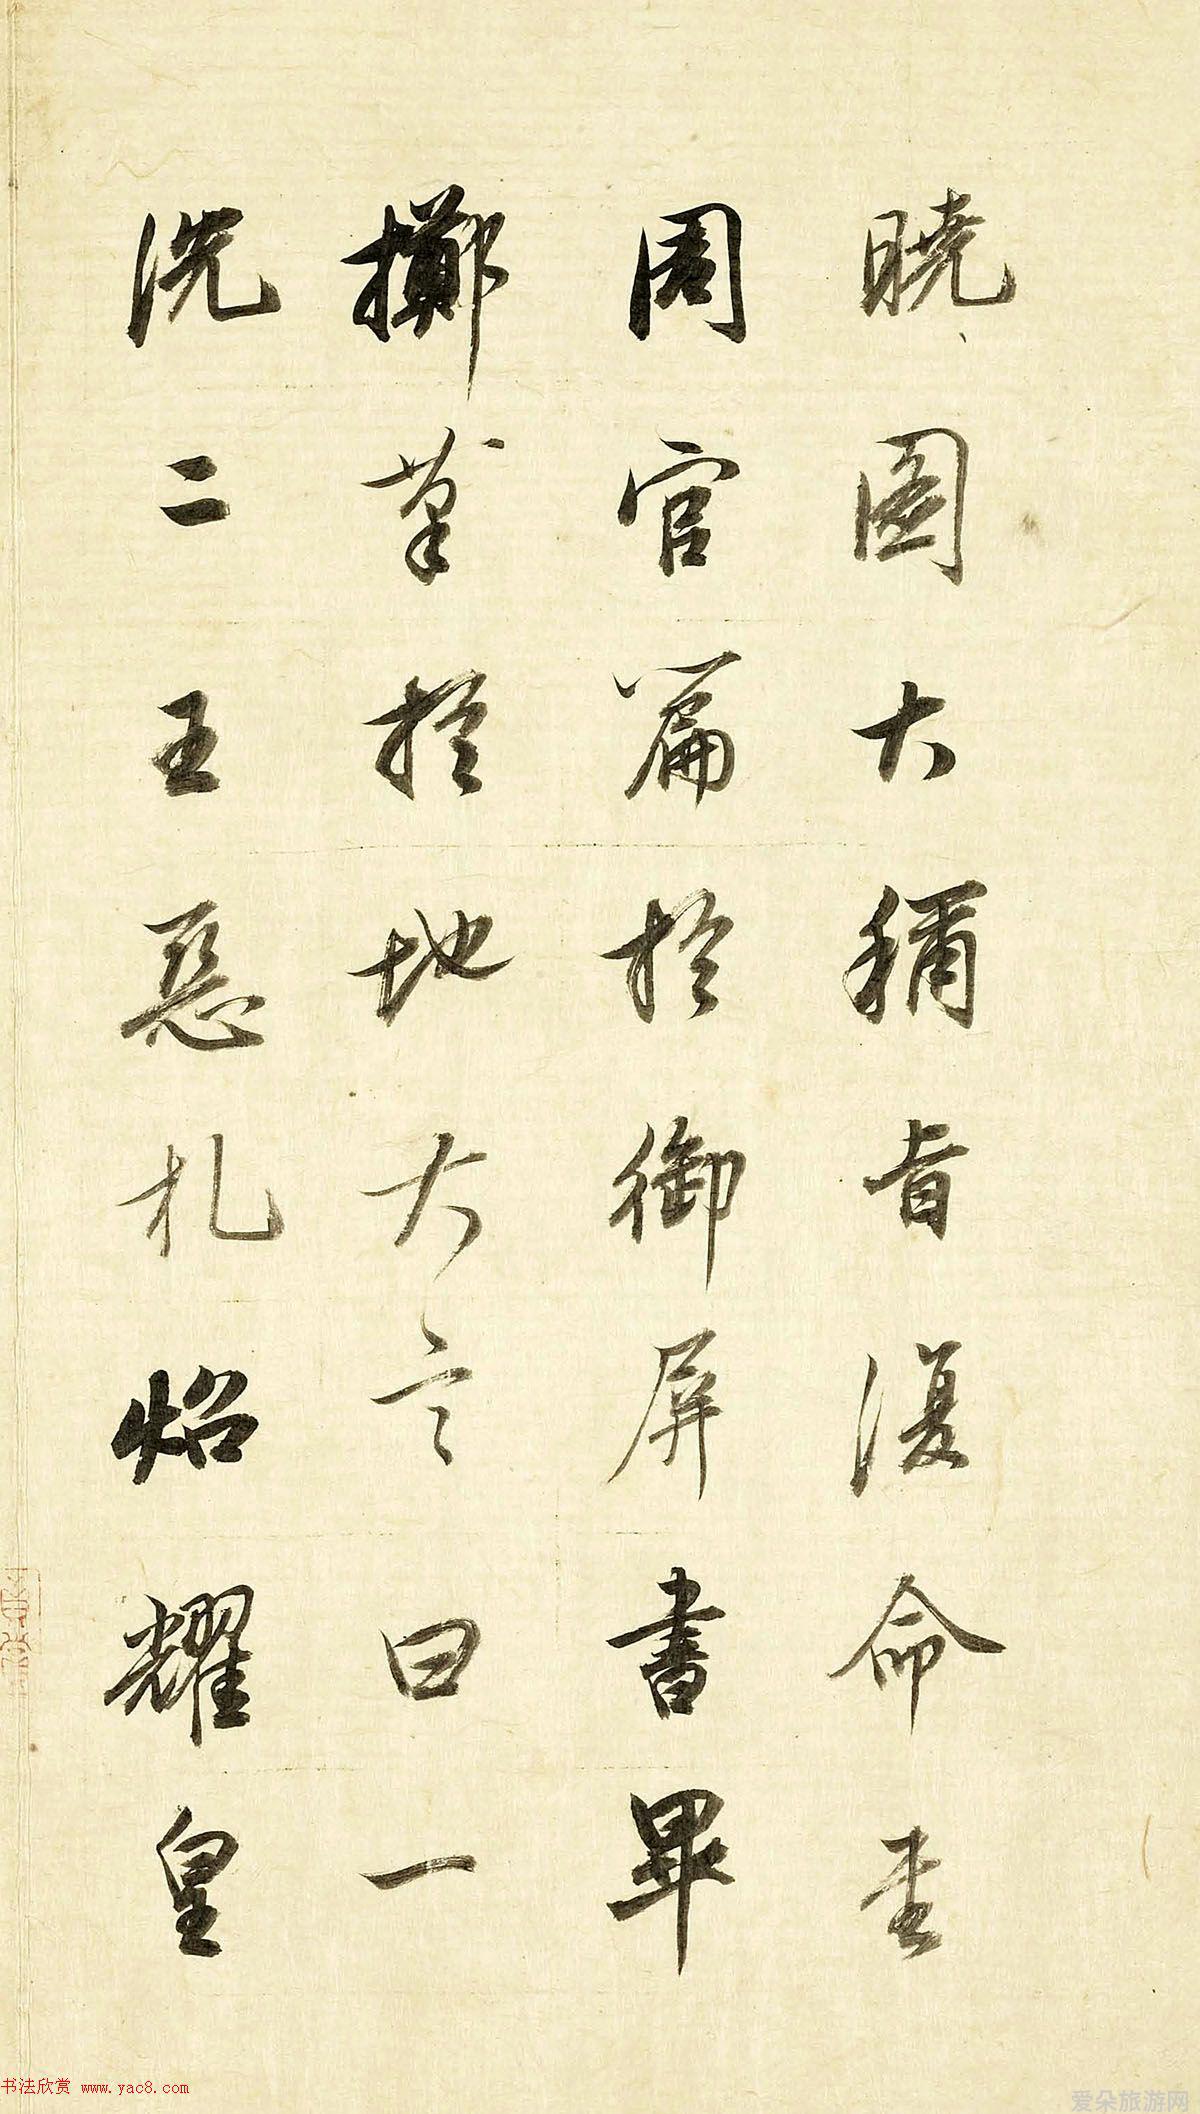 曉圖大稱旨復命書
周官篇於御屏書畢
擲筆於地大言曰一
洗二王惡札照耀皇
书法欣赏 www.yac8.com
爱朵旅游网